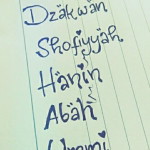 Dzakwan
Shofiyyah
Hanin
Abah
Ummi